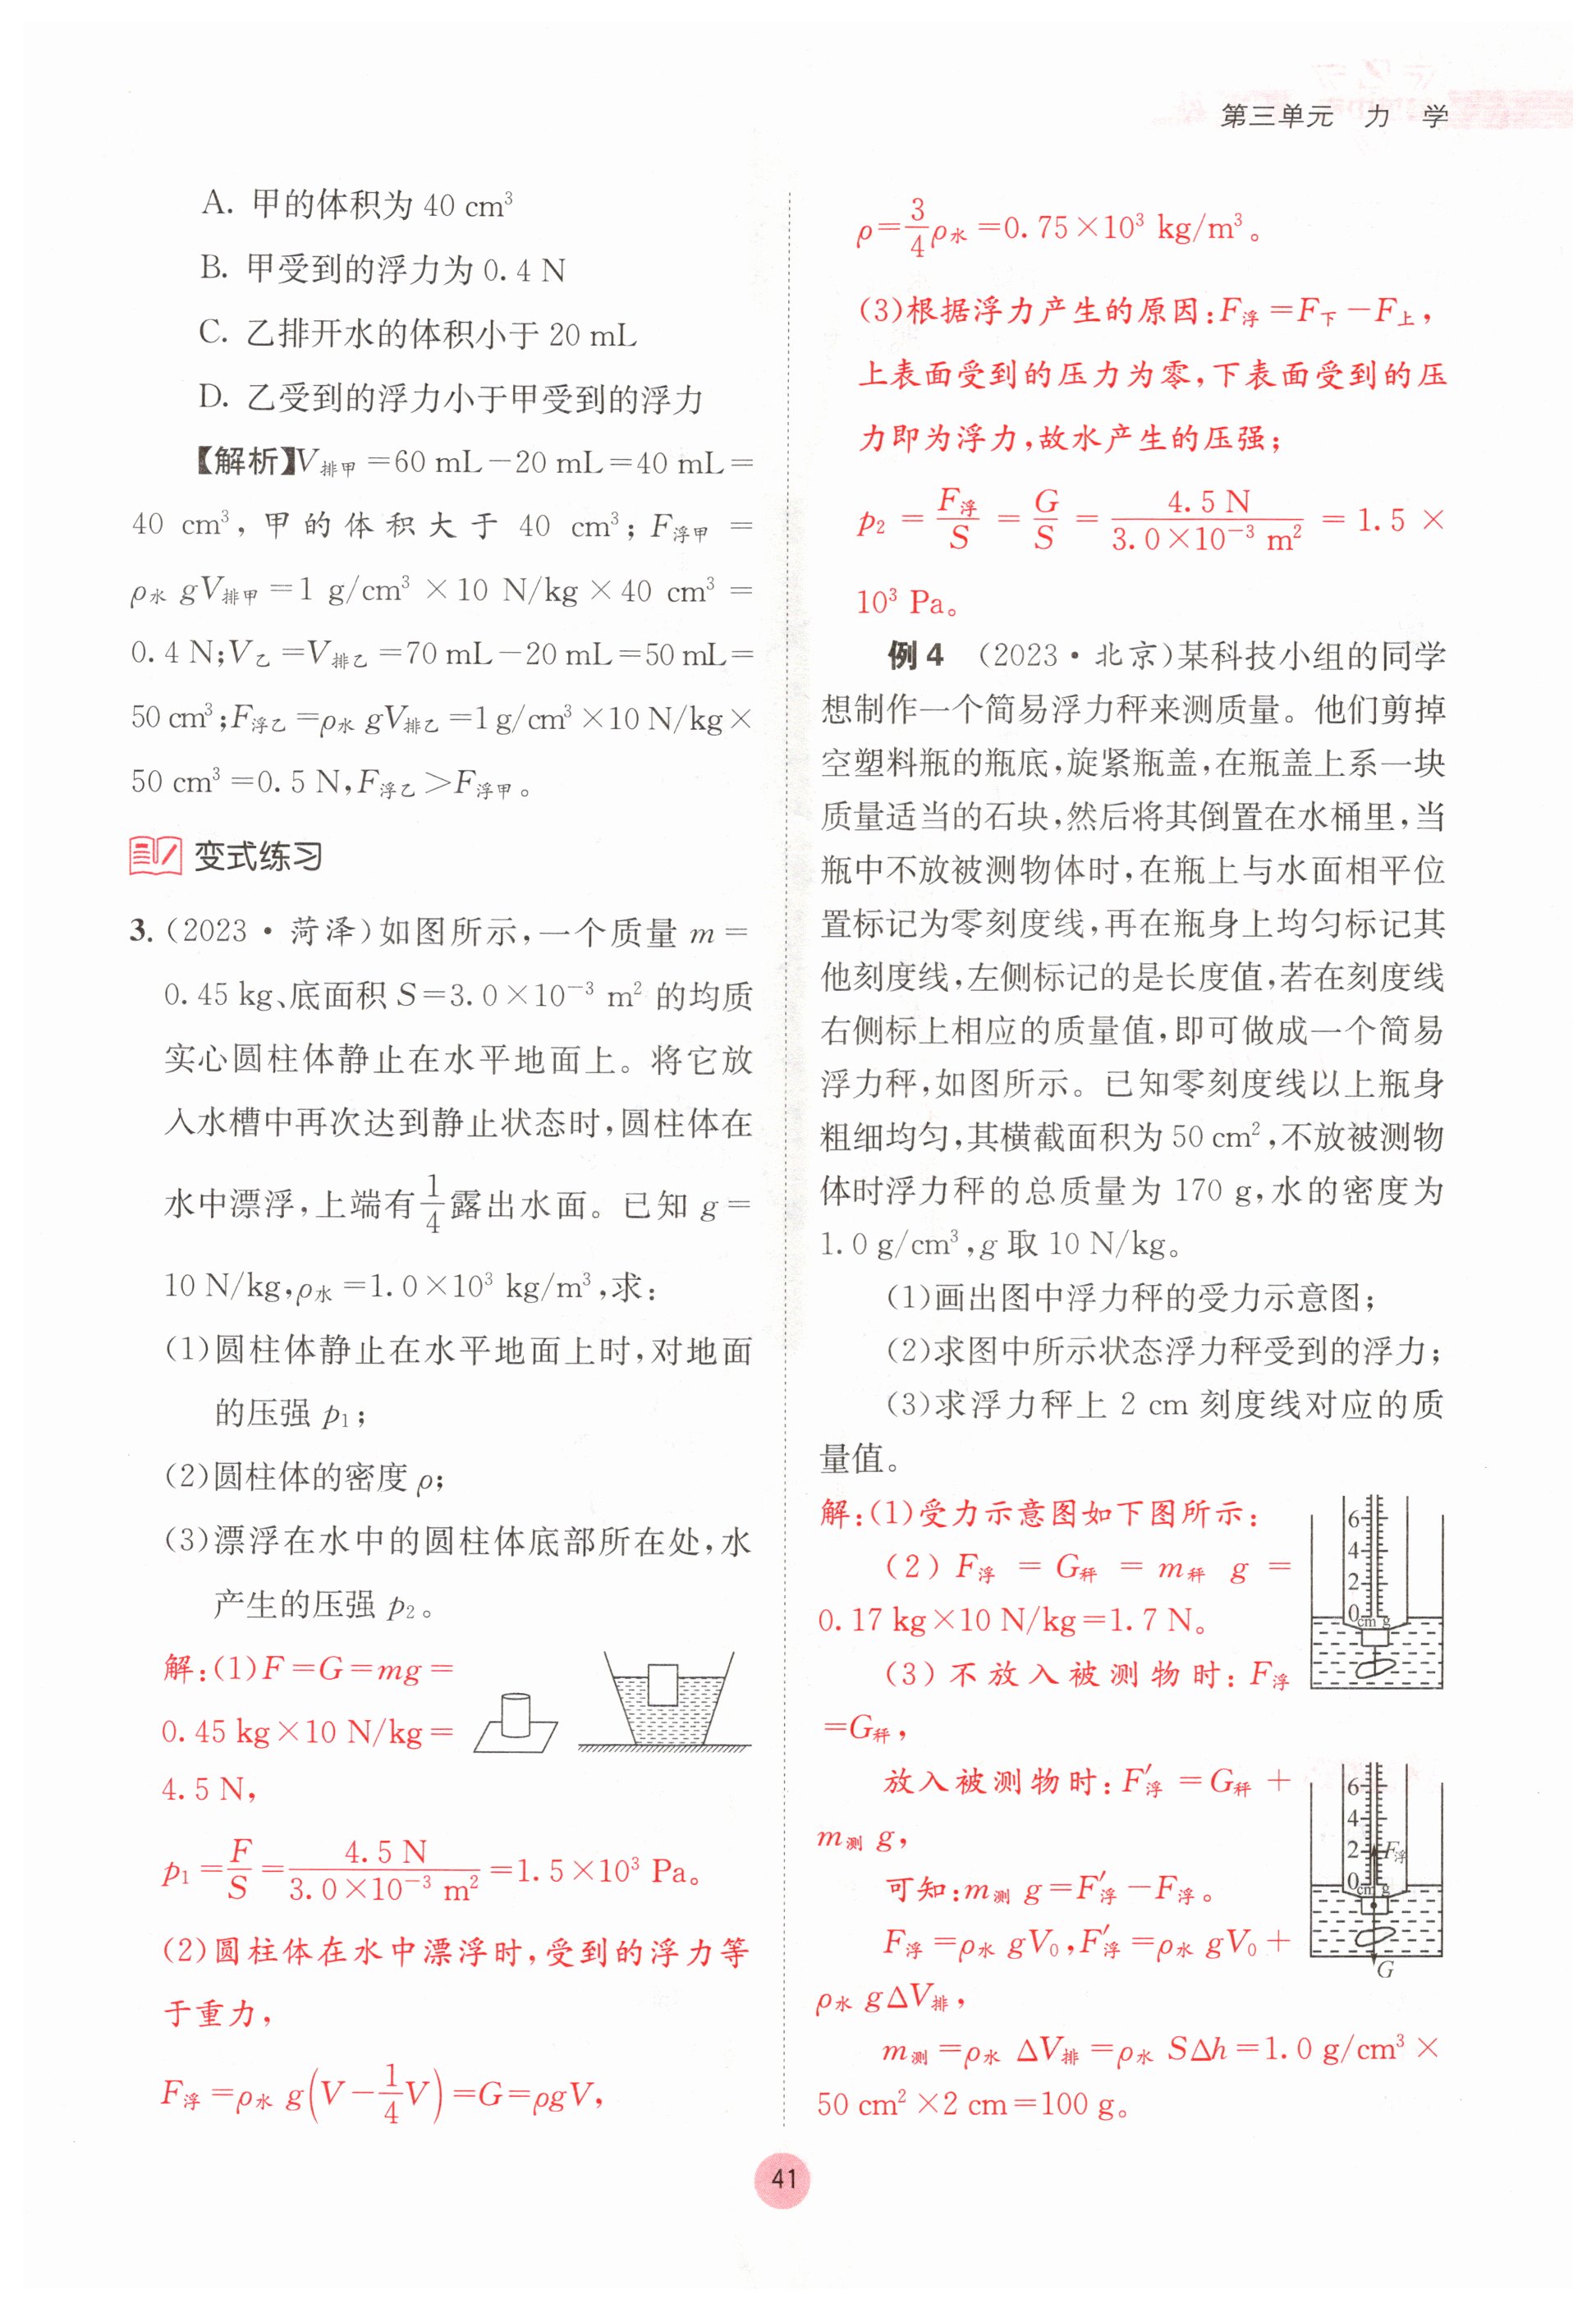 第三单元 力 学
A. 甲的体积为 40 cm³
B. 甲受到的浮力为 0.4 N
C. 乙排开水的体积小于 20 mL
D. 乙受到的浮力小于甲受到的浮力
【解析】V排甲＝60 mL－20 mL＝40 mL＝
40 cm³，甲的体积大于 40 cm³；F浮甲＝
ρ水 gV排甲＝1 g/cm³×10 N/kg×40 cm³＝
0.4 N；V乙＝V排乙＝70 mL－20 mL＝50 mL＝
50 cm³；F浮乙＝ρ水 gV排乙＝1 g/cm³×10 N/kg×
50 cm³＝0.5 N，F浮乙＞F浮甲。
变式练习
3.（2023·菏泽）如图所示，一个质量 m＝
0.45 kg、底面积 S＝3.0×10⁻³ m² 的均质
实心圆柱体静止在水平地面上。将它放
入水槽中再次达到静止状态时，圆柱体在
水中漂浮，上端有1/4露出水面。已知 g＝
10 N/kg，ρ水＝1.0×10³ kg/m³，求：
（1）圆柱体静止在水平地面上时，对地面
的压强 p₁；
（2）圆柱体的密度 ρ；
（3）漂浮在水中的圆柱体底部所在处，水
产生的压强 p₂。
解：（1）F＝G＝mg＝
0.45 kg×10 N/kg＝
4.5 N，
p₁＝F/S＝4.5 N/(3.0×10⁻³ m²)＝1.5×10³ Pa。
（2）圆柱体在水中漂浮时，受到的浮力等
于重力，
F浮＝ρ水 g(V－1/4V)＝G＝ρgV，
ρ＝3/4ρ水＝0.75×10³ kg/m³。
（3）根据浮力产生的原因：F浮＝F下－F上，
上表面受到的压力为零，下表面受到的压
力即为浮力，故水产生的压强；
p₂＝F浮/S＝G/S＝4.5 N/(3.0×10⁻³ m²)＝1.5×
10³ Pa。
例4 （2023·北京）某科技小组的同学
想制作一个简易浮力秤来测质量。他们剪掉
空塑料瓶的瓶底，旋紧瓶盖，在瓶盖上系一块
质量适当的石块，然后将其倒置在水桶里，当
瓶中不放被测物体时，在瓶上与水面相平位
置标记为零刻度线，再在瓶身上均匀标记其
他刻度线，左侧标记的是长度值，若在刻度线
右侧标上相应的质量值，即可做成一个简易
浮力秤，如图所示。已知零刻度线以上瓶身
粗细均匀，其横截面积为 50 cm²，不放被测物
体时浮力秤的总质量为 170 g，水的密度为
1.0 g/cm³，g 取 10 N/kg。
（1）画出图中浮力秤的受力示意图；
（2）求图中所示状态浮力秤受到的浮力；
（3）求浮力秤上 2 cm 刻度线对应的质
量值。
解：（1）受力示意图如下图所示：
（2）F浮＝G秤＝m秤 g＝
0.17 kg×10 N/kg＝1.7 N。
（3）不放入被测物时：F浮
＝G秤，
放入被测物时：F′浮＝G秤＋
m测 g，
可知：m测 g＝F′浮－F浮。
F浮＝ρ水 gV₀，F′浮＝ρ水 gV₀＋
ρ水 gΔV排，
m测＝ρ水 ΔV排＝ρ水 SΔh＝1.0 g/cm³×
50 cm²×2 cm＝100 g。
6
4
2
0
cm g
6
4
2
F浮
0
cm g
G
41